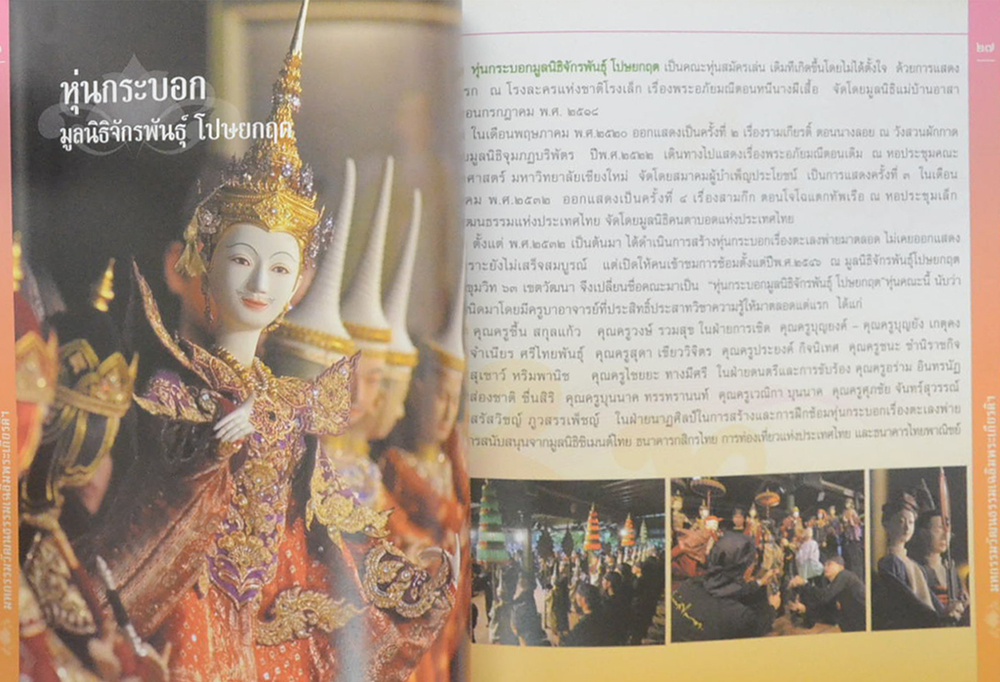 หุ่นกระบอก
มูลนิธิจักรพันธุ์ โปษยกฤต
๒๗
หุ่นกระบอกมูลนิธิจักรพันธุ์ โปษยกฤต เป็นคณะหุ่นสมัครเล่น เดิมทีเกิดขึ้นโดยไม่ได้ตั้งใจ ด้วยการแสดง
รก ณ โรงละครแห่งชาติโรงเล็ก เรื่องพระอภัยมณีตอนหนีนางผีเสื้อ จัดโดยมูลนิธิแม่บ้านอาสา
อนกรกฎาคม พ.ศ. ๒๕๑๘
ในเดือนพฤษภาคม พ.ศ.๒๕๒๐ ออกแสดงเป็นครั้งที่ ๒ เรื่องรามเกียรติ์ ตอนนางลอย ณ วังสวนผักกาด
ยมูลนิธิจุมภฏบริพัตร ปีพ.ศ.๒๕๒๒ เดินทางไปแสดงเรื่องพระอภัยมณีตอนเดิม ณ หอประชุมคณะ
ศาสตร์ มหาวิทยาลัยเชียงใหม่ จัดโดยสมาคมผู้บำเพ็ญประโยชน์ เป็นการแสดงครั้งที่ ๓ ในเดือน
คม พ.ศ.๒๕๓๒ ออกแสดงเป็นครั้งที่ ๔ เรื่องสามก๊ก ตอนโจโฉแตกทัพเรือ ณ หอประชุมเล็ก
วัฒนธรรมแห่งประเทศไทย จัดโดยมูลนิธิคนตาบอดแห่งประเทศไทย
ตั้งแต่ พ.ศ.๒๕๓๒ เป็นต้นมา ได้ดำเนินการสร้างหุ่นกระบอกเรื่องตะเลงพ่ายมาตลอด ไม่เคยออกแสดง
ราะยังไม่เสร็จสมบูรณ์ แต่เปิดให้คนเข้าชมการซ้อมตั้งแต่ปีพ.ศ.๒๕๔๖ ณ มูลนิธิจักรพันธุ์โปษยกฤต
ขุมวิท ๖๓ เขตวัฒนา จึงเปลี่ยนชื่อคณะมาเป็น "หุ่นกระบอกมูลนิธิจักรพันธุ์ โปษยกฤต"หุ่นคณะนี้ นับว่า
นิดมาโดยมีครูบาอาจารย์ที่ประสิทธิ์ประสาทวิชาความรู้ให้มาตลอดแต่แรก ได้แก่
คุณครูชื้น สกุลแก้ว คุณครูวงษ์ รวมสุข ในฝ่ายการเชิด คุณครูบุญยงค์ – คุณครูบุญยัง เกตุคง
จำเนียร ศรีไทยพันธุ์ คุณครูสุดา เขียววิจิตร คุณครูประยงค์ กิจนิเทศ คุณครูชนะ ชำนิราชกิจ
สุเชาว์ หริมพานิช คุณครูไชยยะ ทางมีศรี ในฝ่ายดนตรีและการขับร้อง คุณครูอร่าม อินทรนัฏ
ส่องชาติ ชื่นศิริ คุณครูบุนนาค ทรรทรานนท์ คุณครูเวณิกา บุนนาค คุณครูศุภชัย จันทร์สุวรรณ์
รัสวิชญ์ ภูวสรรเพ็ชญ์ ในฝ่ายนาฏศิลป์ในการสร้างและการฝึกซ้อมหุ่นกระบอกเรื่องตะเลงพ่าย
การสนับสนุนจากมูลนิธิซิเมนต์ไทย ธนาคารกสิกรไทย การท่องเที่ยวแห่งประเทศไทย และธนาคารไทยพาณิชย์
มหกรรมวัฒนธรรมเฉลิมพระเกียรติฯ
มหกรรมวัฒนธรรมเฉลิมพระเกียรติฯ